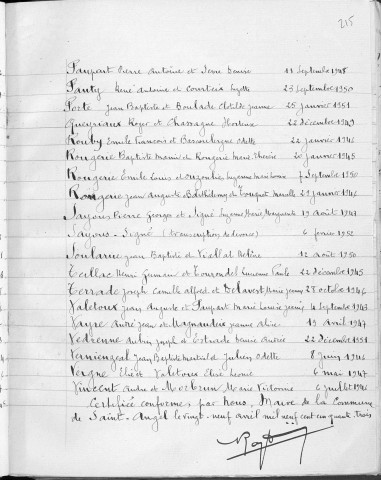 215
Paupart Pierre Antoine et Serre Denise 11 Septembre 1948
Pauty René Antoine et Courteix Lyette 23 Septembre 1950
Porte Jean Baptiste et Boulade Clotilde Jeanne 25 janvier 1951
Queyriaux Roger et Chassagne Hortense 22 Décembre 1949
Rouby Emile François et Odette 22 janvier 1946
Rougerie Baptiste Marcel et Rougerie Marie Thérèse 20 janvier 1945
Rougerie Emile Louis et 7 Septembre 1950
Rougerie Jean Auguste Barthélemy et Marcelle 29 janvier 1949
Sayous Pierre George et Signé Suzanne Marie Marguerite 19 août 1941
Sayous - Signé (transcription de divorce) 6 février 1952
Soularue Jean Baptiste et Viallat Hélène 12 août 1950
Henri Germain et Simonne Paule 22 Décembre 1945
Terrade Joseph Camille Alfred et Marie Jeanne 28 octobre 1946
Valetoux Jean Auguste et Paupart Marie Louise 4 Septembre 1943
Vayre André Jean et Magnaudeix Jeanne 19 avril 1947
Vedrenne Aubin Joseph et Estrade 22 Décembre 1951
Jean Baptiste Martial et Julien Odette 8 juin 1946
Vergne Elie et Valetoux Elise Léonie 6 mai 1947
Vincent André et Marie Victorine 6 juillet 1946
Certifié conforme par Nous, Maire de la Commune
de Saint-Angel le vingt-neuf avril mil neuf cent cinquante-trois